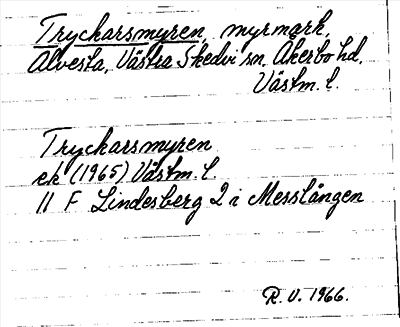 Tryckarsmyren, myrmark,
Alvesta, Västra Skedvi sn, Åkerbo hd,
Västm. l.
Tryckarsmyren
ek (1965) Västm. l.
11 F Lindesberg 2 i Messlången
R. V. 1966.